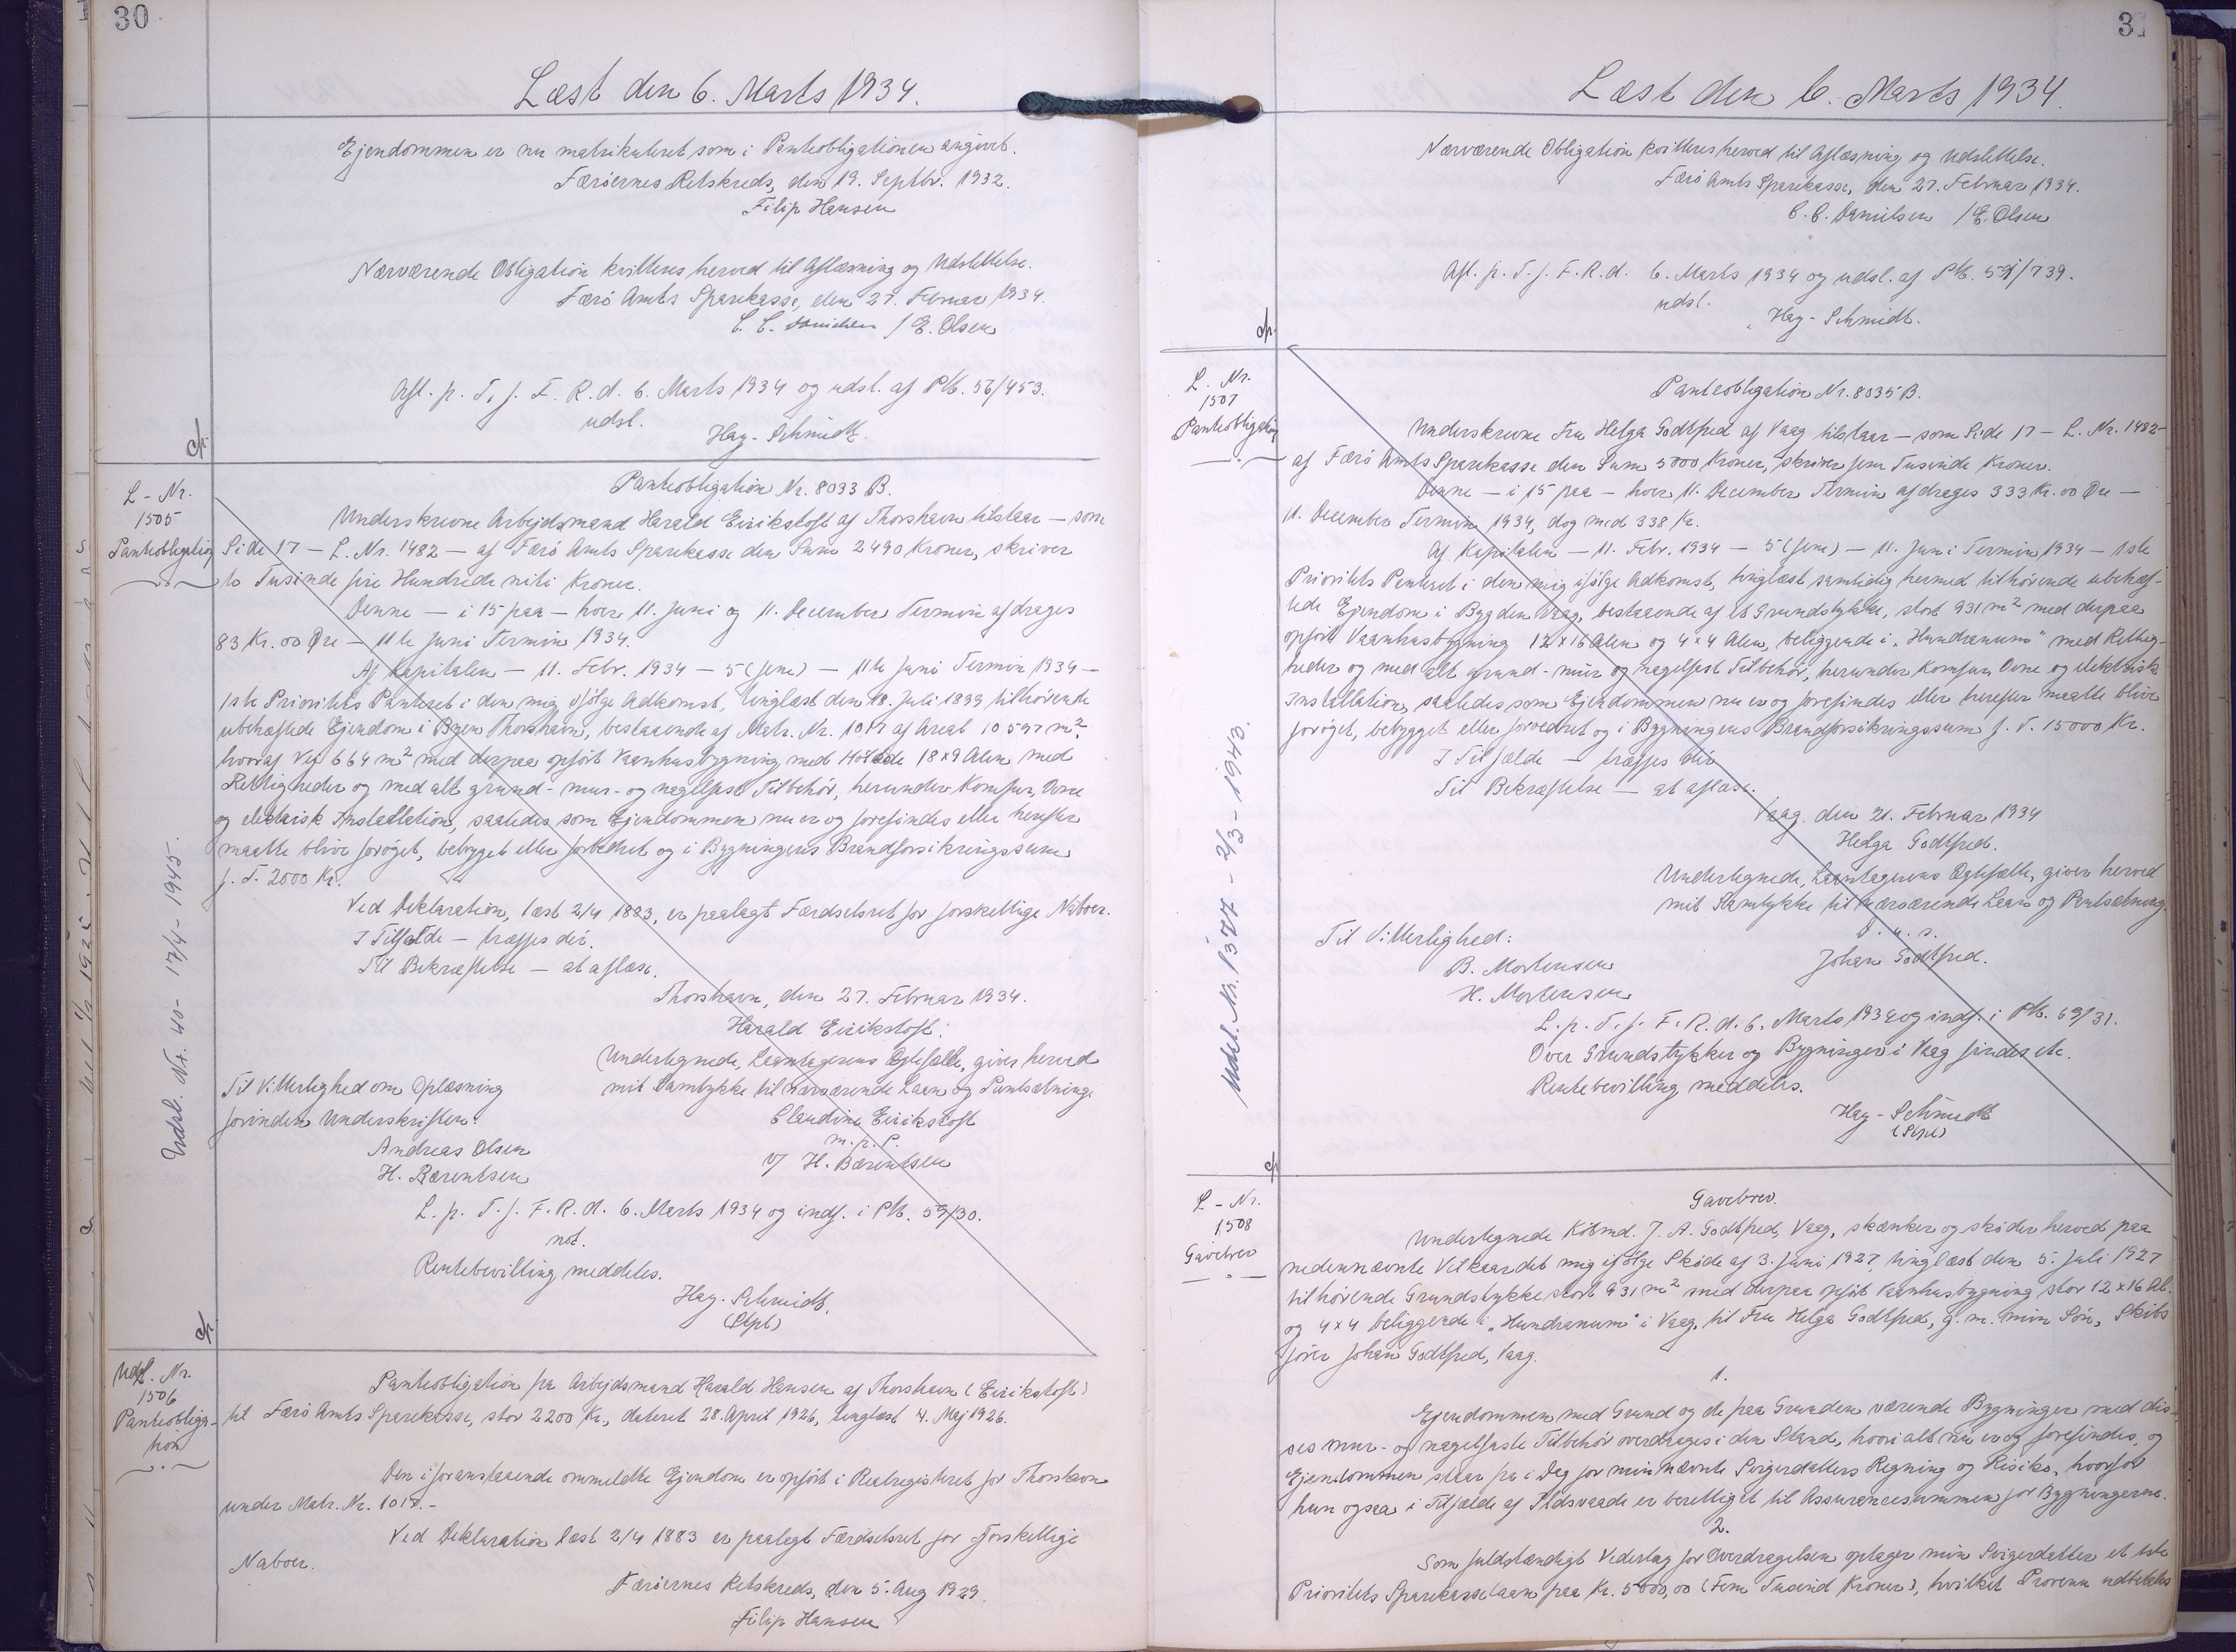 30
Læst den 6. Marts 1934.
Ejendommen er nu matrikuleret som i Panteobligationen angivet.
Færöernes Retskreds, den 19. Septbr. 1932.
Filip Hansen
Nærværende Obligation kvitteres herved til Aflæsning og Udslettelse.
Færö Amts Sparekasse, den 27. Februar 1934.
C. C. Danielsen / E. Olsen
Afl. p. T. f. F. R. d. 6. Marts 1934 og udsl. af Pb. 56/453.
udsl.
Hay-Schmidt.
L-Nr.
1505
Panteobligation
Panteobligation Nr. 8033 B.
Underskrevne Arbejdsmand Harald Eirikstoft af Thorshavn tilstaar – som
Side 17 – L. Nr. 1482 – af Færö Amts Sparekasse den Sum 2490 Kroner, skriver
to Tusinde fire Hundrede niti Kroner.
Denne – i 15 paa – hver 11. Juni og 11. December Termin afdrages
83 Kr. 00 Öre – 11te Juni Termin 1934.
Af Kapitalen – 11. Febr. 1934 – 5 (fem) – 11te Juni Termin 1934 –
1ste Prioritets Panteret i den mig ifölge Adkomst, tinglæst den 18. Juli 1899 tilhörende
ubehæftede Ejendom i Byen Thorshavn, bestaaende af Matr. Nr. 1017 af Areal 10597 m²,
hvoraf Vej 664 m² med derpaa opfört Vaanhusbygning med 18x9 Alen med
Rettigheder og med alt grund- mur- og nagelfast Tilbehör, herunder Komfur, Ovne
og elektrisk Installation, saaledes som Ejendommen nu er og forefindes eller herefter
maatte blive foröget, bebygget eller forbedret og i Bygningens Brandforsikringssum
f. T. 2000 Kr.
Ved Deklaration, læst 2/4 1883, er paalagt Færdselsret for forskellige Naboer.
I Tilfælde – træffes dér.
Til Bekræftelse – at aflæse.
Thorshavn, den 27. Februar 1934.
Harald Eirikstoft:
Undertegnede, Laantagerens Ægtefælle, giver herved
mit Samtykke til nærværende Laan og Pantsætning.
Claudine Eirikstoft
m. p. P.
v/ H. Bærentsen
Til Vitterlighed om Oplæsning
forinden Underskriften:
Andreas Olsen
H. Bærentsen
L. p. T. f. F. R. d. 6. Marts 1934 og indf. i Pb. 59/30.
not.
Rentebevilling meddeles.
Hay-Schmidt.
(Stpl)
Udsl. Nr. 40 - 17/4 - 1945.
Udsl. Nr.
1506
Panteobliga-
tion
Panteobligation fra Arbejdsmand Harald Hansen af Thorshavn (Eirikstoft)
til Færö Amts Sparekasse, stor 2200 Kr., dateret 28. April 1926, tinglæst 4. Maj 1926.
Den i foranstaaende ommeldte Ejendom er opfört i Realregisteret for Thorshavn
under Matr. Nr. 1017.-
Ved Deklaration læst 2/4 1883 er paalagt Færdselsret for forskellige
Naboer.
Færöernes Retskreds, den 5. Aug 1929.
Filip Hansen
31
Læst den 6. Marts 1934.
Nærværende Obligation kvitteres herved til Aflæsning og Udslettelse.
Færö Amts Sparekasse, den 27. Februar 1934.
C. C. Danielsen / E. Olsen
Afl. p. T. f. F. R. d. 6. Marts 1934 og udsl. af Pb. /739.
udsl.
Hay-Schmidt.
L. Nr.
1507
Panteobligation
Panteobligation Nr. 8035 B.
Underskrevne Fru Helga Godtfred af Vaag tilstaar – som Side 17 – L. Nr. 1482 –
af Færö Amts Sparekasse den Sum 5000 Kroner, skriver fem Tusinde Kroner.
Denne – i 15 paa – hver 11. December Termin afdrages 333 Kr. 00 Öre –
11. December Termin 1934, dog med 338 Kr.
Af Kapitalen – 11. Febr. 1934 – 5 (fem) – 11. Juni Termin 1934 – 1ste
Prioritets Panteret i den mig ifölge Adkomst, tinglæst samtidig hermed tilhörende ubehæf-
tede Ejendom i Bygden Vaag, bestaaende af et Grundstykke, stort 931 m² med derpaa
opfört Vaanhusbygning 12 x 16 Alen og 4 x 4 Alen, beliggende i „Hundranum" med Rettig-
heder og med alt grund- mur og nagelfast Tilbehör, herunder Komfur, Ovne og elektrisk
Installation, saaledes som Ejendommen nu er og forefindes eller herefter maatte blive
foröget, bebygget eller forbedret og i Bygningens Brandforsikringssum f. T. 15000 Kr.
I Tilfælde – træffes dér
Til Bekræftelse – at aflæse.
Vaag den 21. Februar 1934
Helga Godtfred.
Undertegnede, Laantagerens Ægtefælle, giver herved
mit Samtykke til nærværende Laan og Pantsætning.
D. u. s.
Johan Godtfred.
Til Vitterlighed:
B. Mortensen
H. Mortensen
L. p. T. f. F. R. d. 6. Marts 1934 og indf. i Pb. 59/31.
Over Grundstykker og Bygninger i Vaag findes etc.
Rentebevilling meddeles.
Hay-Schmidt
(Stpl)
Udsl. Nr. 1377 - 2/3 - 1943.
L-Nr.
1508
Gavebrev
Gavebrev.
Undertegnede Köbmd. J. A. Godtfred, Vaag, skænker og sköder herved paa
nedennævnte Vilkaar det mig ifölge Sköde af 3. Juni 1927, tinglæst den 5. Juli 1927
tilhörende Grundstykke stort 931 m² med derpaa opfört Vaanhusbygning stor 12 x 16 Al.
og 4 x 4 beliggende i „Hundranum" i Vaag, til Fru Helga Godtfred, g. m. min Sön, Skibs
förer Johan Godtfred, Vaag.
1.
Ejendommen med Grund og de paa Grunden værende Bygninger med dis-
ses mur- og nagelfaste Tilbehör overdrages i den Stand, hvori alt nu er og forefindes, og
Ejendommen staar fra i Dag for min nævnte Svigerdatters Regning og Risiko, hvorfor
hun ogsaa i Tilfælde af Ildsvaade er berettiget til Assurancesummen for Bygningerne.
2.
Som fuldstændigt Vederlag for Overdragelsen optager min Svigerdatter et 1ste
Prioritets Sparekasselaan paa Kr. 5000,00 (Fem Tusind Kroner), hvilket Provenu udbetales